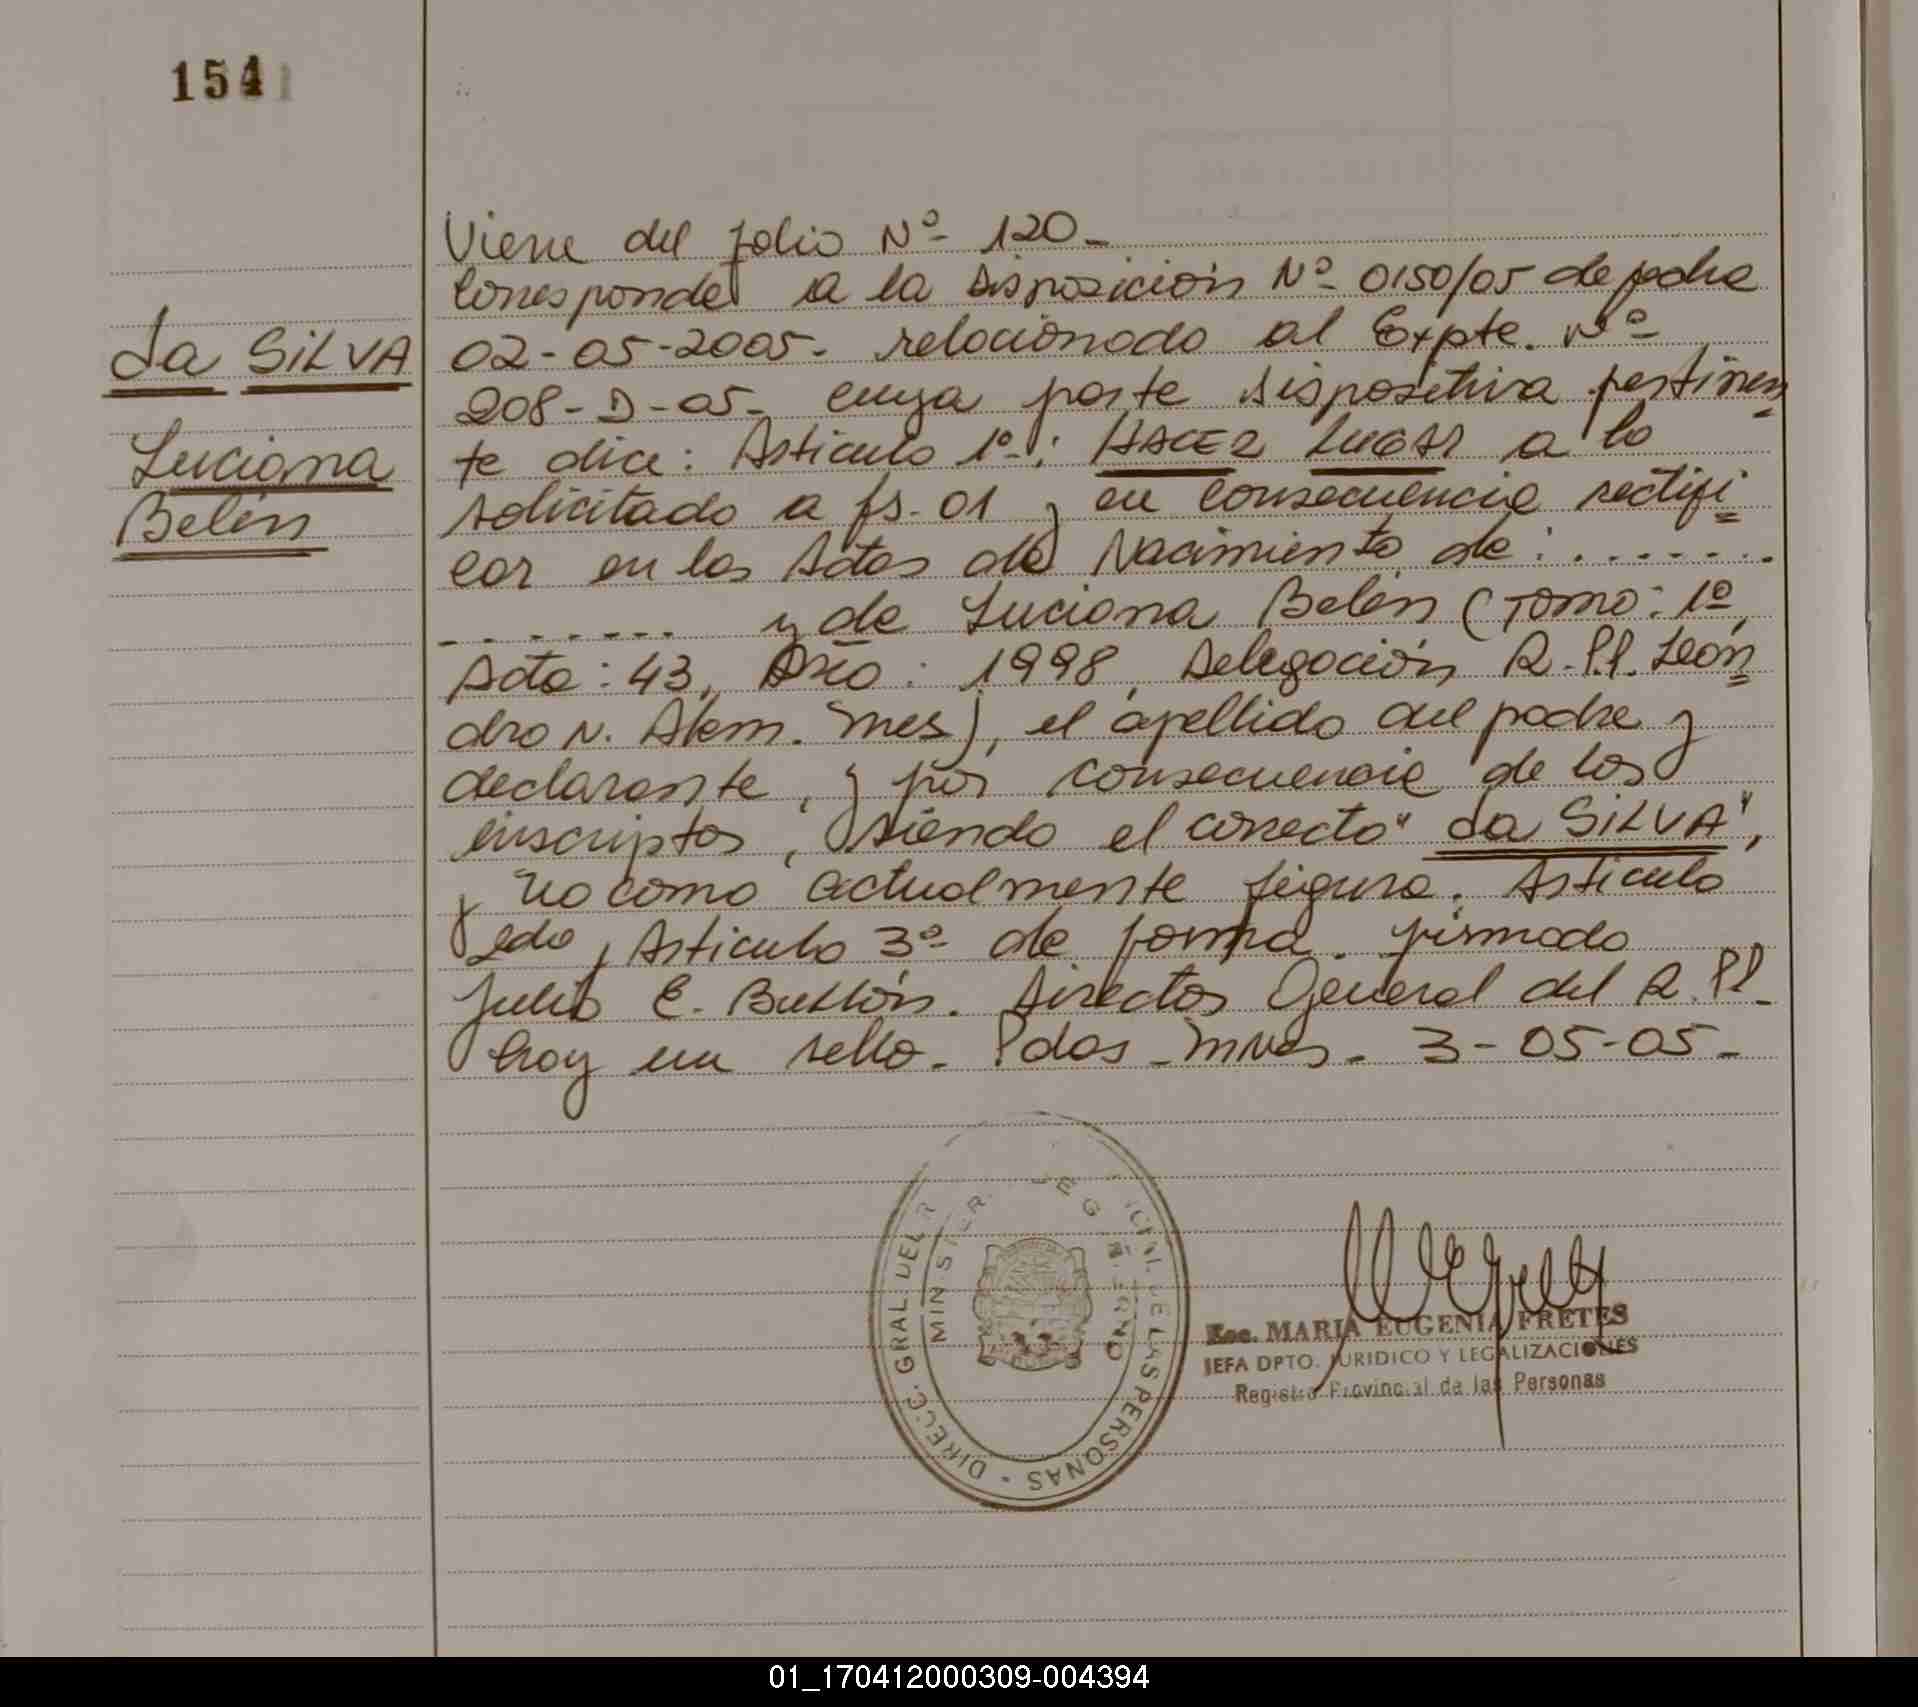 154
Viene del folio Nº 120-
Corresponde a la Disposición Nº 0150/05 de fecha
02-05-2005- relacionado al Expte. Nº
208-D-05- cuya parte dispositiva pertinen
te dice: Articulo 1º: HACER LUGAR a lo
solicitado a fs. 01 y en consecuencia rectifi
car en las Actas de Nacimiento de: . . . . . . .
- . . . . . . . y de Luciana Belén (Tomo: 1º,
Acta: 43, Año: 1998, Delegación R.P.P. León
dro N. Alem. Mnes), el apellido del padre y
declarante, y por consecuencia de los
inscriptos, siendo el correcto "da SILVA",
y no como actualmente figura. Articulo
2do, Articulo 3º de forma. firmado
Julio E. Buttón. Director General del R.P.P.
hoy un sello. Pdas-Mnes- 3-05-05-
da SILVA
Luciana
Belén
DIRECC. GRAL. DEL R CIAL DE LAS PERSONAS
MINISTER
Esc. MARIA EUGENIA FRETES
JEFA DPTO. JURIDICO Y LEGALIZACIONES
Registro Provincial de las Personas
01_170412000309-004394